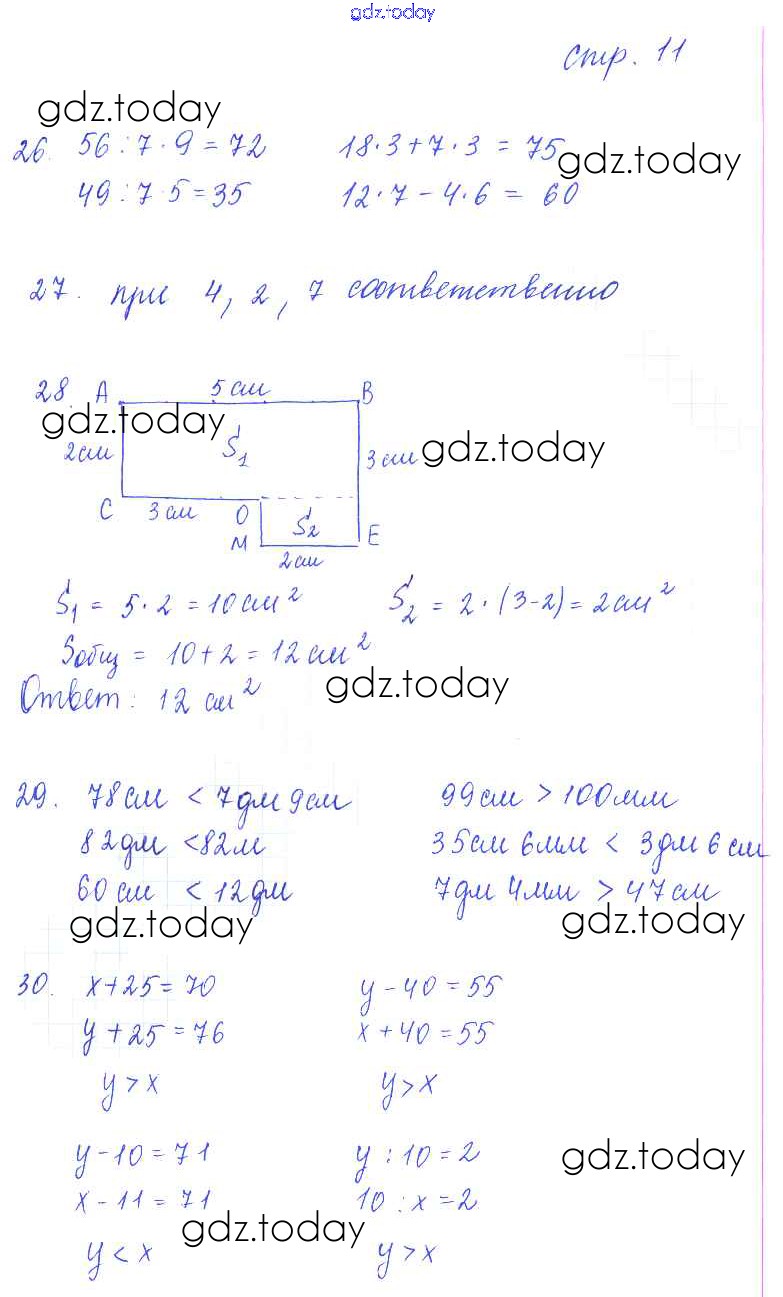 gdz.today
стр. 11
gdz.today
26. 56 : 7 · 9 = 72 18·3+7·3 = 75
gdz.today
49 : 7 · 5 = 35 12·7 – 4·6 = 60
27. при 4, 2, 7 соответственно
28. A 5 см B
gdz.today
2см S₁ 3 см gdz.today
C 3 см O S₂ E
M 2см
S₁ = 5·2 = 10см² S₂ = 2·(3-2) = 2см²
Sобщ = 10+2 = 12 см²
Ответ: 12 см² gdz.today
29. 78см < 7дм 9см 99см > 100мм
82дм < 82м 35см 6мм < 3дм 6 см
60 см < 12дм 7дм 4мм > 47см
gdz.today gdz.today
30. x+25 = 70 y – 40 = 55
y + 25 = 76 x + 40 = 55
y > x y > x
y – 10 = 71 y : 10 = 2 gdz.today
x – 11 = 71 10 : x = 2
gdz.today
y < x y > x